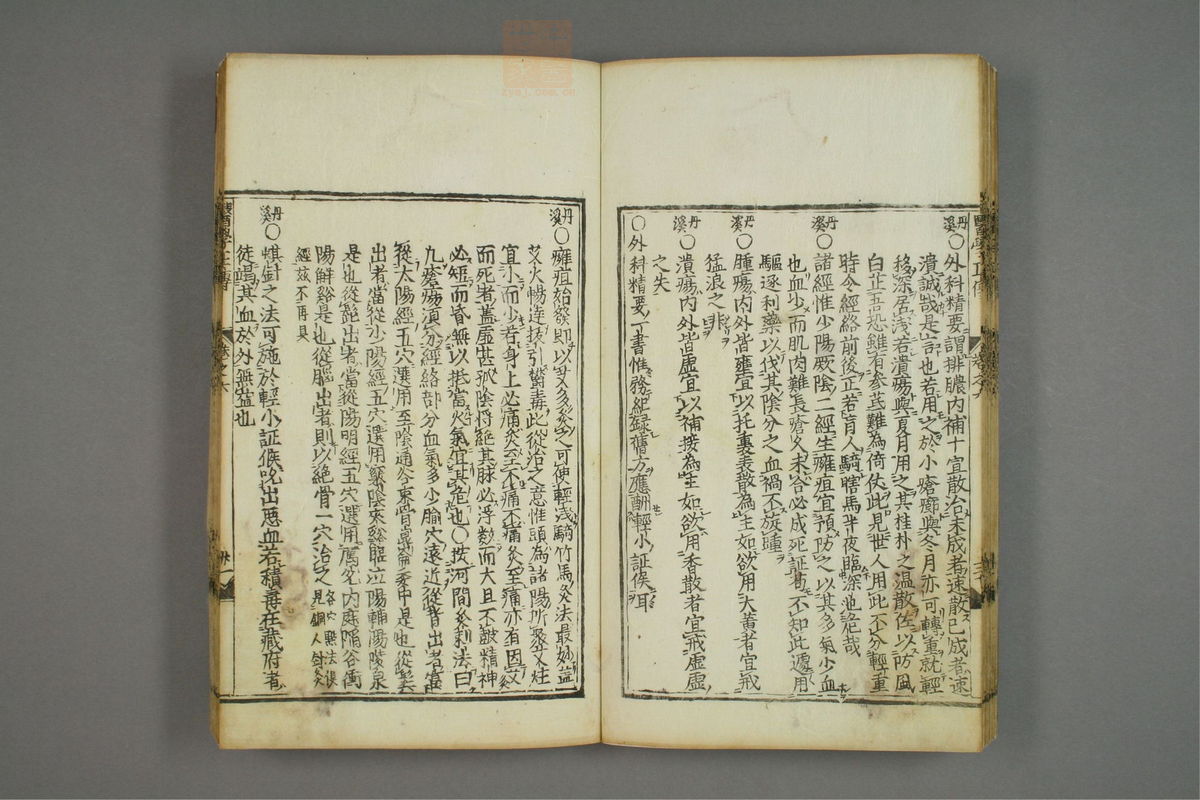 丹溪○外科精要謂排膿內補十宣散治未成者速散已成者速
潰誠哉是言也若用之於小瘡癤與冬月亦可轉重就輕
移深居淺若潰瘍與夏月用之其桂朴之温散佐以防風
白芷吾恐雖有參芪難為倚仗此見世人用此不分輕重
時令經絡前後正若盲人騎瞎馬半夜臨深池危哉
丹溪○諸經惟少陽厥陰二經生癰疽宜預防之以其多氣少血
也血少而肌肉難長瘡久未合必成死証苟不知此遽用
驅逐利藥以伐其陰分之血禍不旋踵
丹溪○腫瘍內外皆壅宜以托裏表散為主如欲用大黃者宜戒
猛浪之非
丹溪○潰瘍內外皆虛宜以補接為主如欲用香散者宜戒虛虛
之失
○外科精要一書惟務紀録舊方應酬輕小証候耳
丹溪○癰疽始發即以艾多灸之可使輕淺騎竹馬灸法最妙益
艾火暢達拔引鬱毒此從治之意惟頭為諸陽所聚艾炷
宜小而少若身上必痛灸至不痛不痛灸至痛亦有因灸
而死者蓋虛甚孤陰将絕其脉必浮數而大且不鼓精神
必短而昏無以抵當火氣宜其危也○按河間灸刺法曰
凡瘡瘍須分經絡部分血氣多少腧穴遠近從背出者當
從太陽經五穴選用至陰通谷束骨崑崙委中是也從鬢
出者當從少陽經五穴選用竅陰俠谿臨泣陽輔陽陵泉
是也從髭出者當從陽明經五穴選用厲兌內庭陷谷衝
陽解谿是也從腦出者則以絶骨一穴治之各穴點法俱見銅人針灸
經茲不再具
丹溪○蜞針之法可施於輕小証候吮出惡血若積毒在藏府者
徒竭其血於外無益也
卷之六